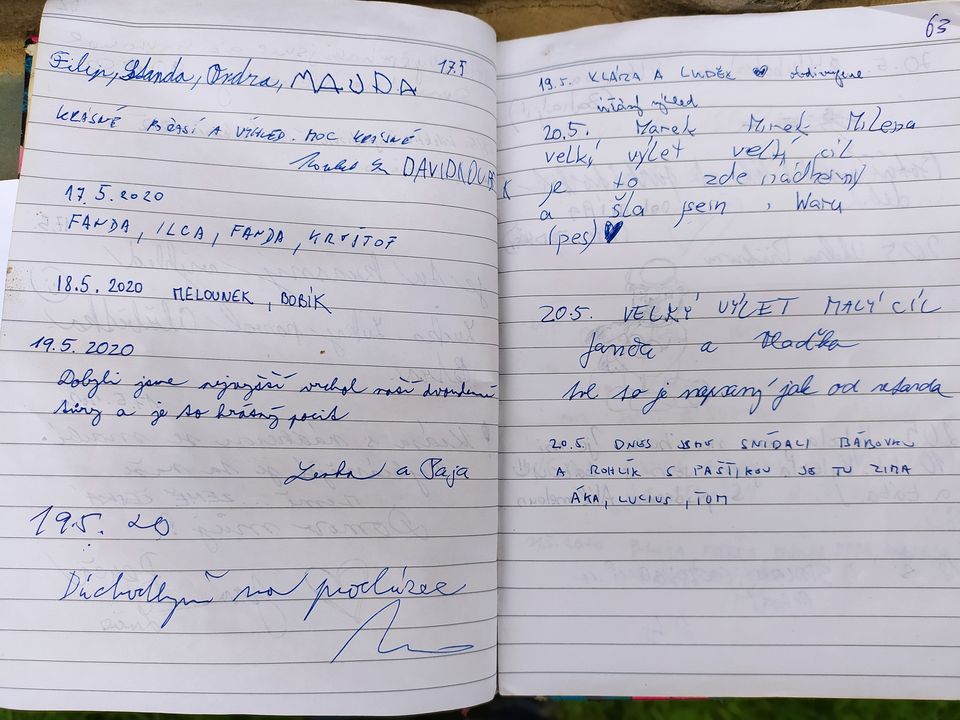 Filip, Standa, Ondra, MAUDA 17.5
KRÁSNÉ POČASÍ A VÝHLED. MOC KRÁSNÉ
DAVIDKOVÁ
17.5.2020
FANDA, ILCA, FANDA, KRYŠTOF
18.5.2020 MELOUNEK, BOBÍK
19.5.2020
Dobyli jsme nejvyšší vrchol naší dvoudenní
túry a je to krásný pocit
Lenka a Pája
19.5.20
Důchodkyně na procházce
63
19.5. KLÁRA A LUDĚK ♥ obdivujeme
úžasný výhled
20.5. Marek Mirek Milena
velký výlet velký cíl
je to zde nádherný
a šla jsem i Waru
(pes) ♥
20.5. VELKÝ VÝLET MALÝ CÍL
Janda a Vlaďka
to je napsaný jak od retarda
20.5. DNES JSME SNÍDALI BÁBOVKU
A ROHLÍK S PAŠTIKOU JE TU ZIMA
ÁKA, LUCIUS, TOM